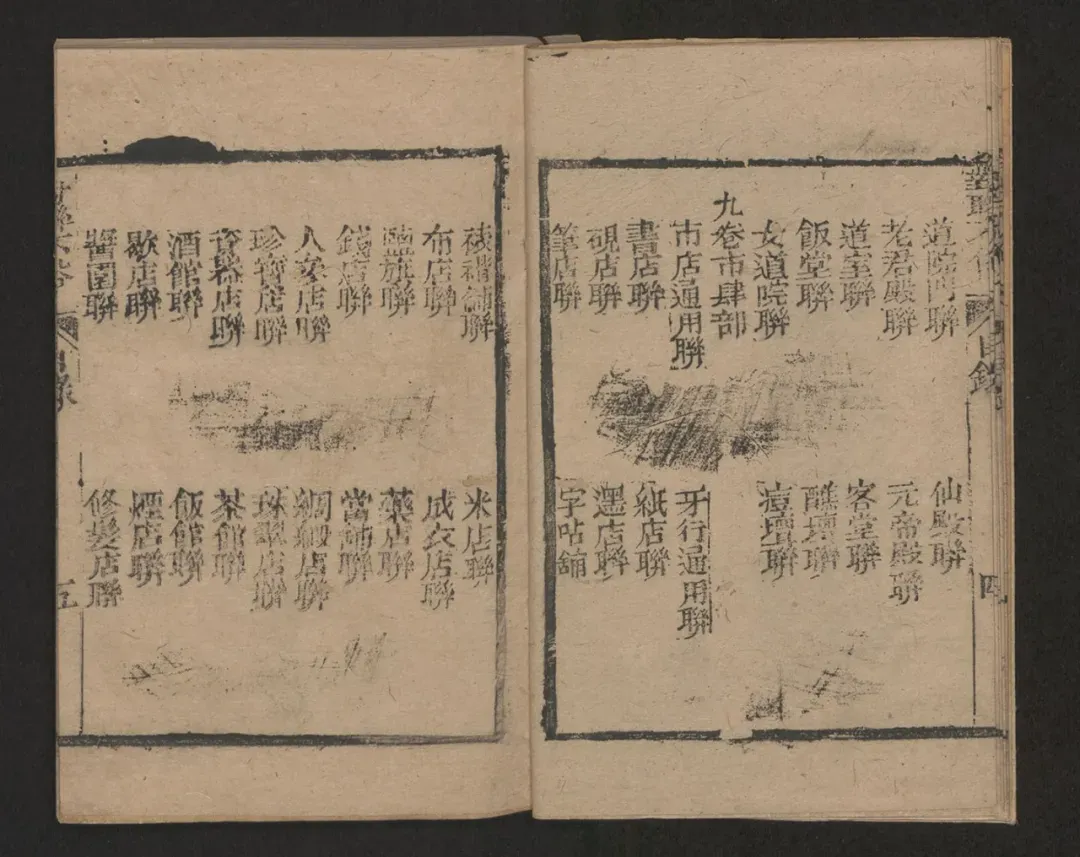 道院門聯
仙殿聯
老君殿聯
元帝殿聯
道室聯
客堂聯
飯堂聯
醮壇聯
女道院聯
痘壇聯
九卷市肆部
市店通用聯
牙行通用聯
書店聯
紙店聯
硯店聯
墨店聯
筆店聯
字帖舖
目錄
四
裱褙舖聯
米店聯
布店聯
成衣店聯
藥店聯
錢店聯
當舖聯
人參店聯
綢緞店聯
珍寶店聯
店聯
茶館聯
酒館聯
飯館聯
歇店聯
煙店聯
醬園聯
修髮店聯
目錄
五